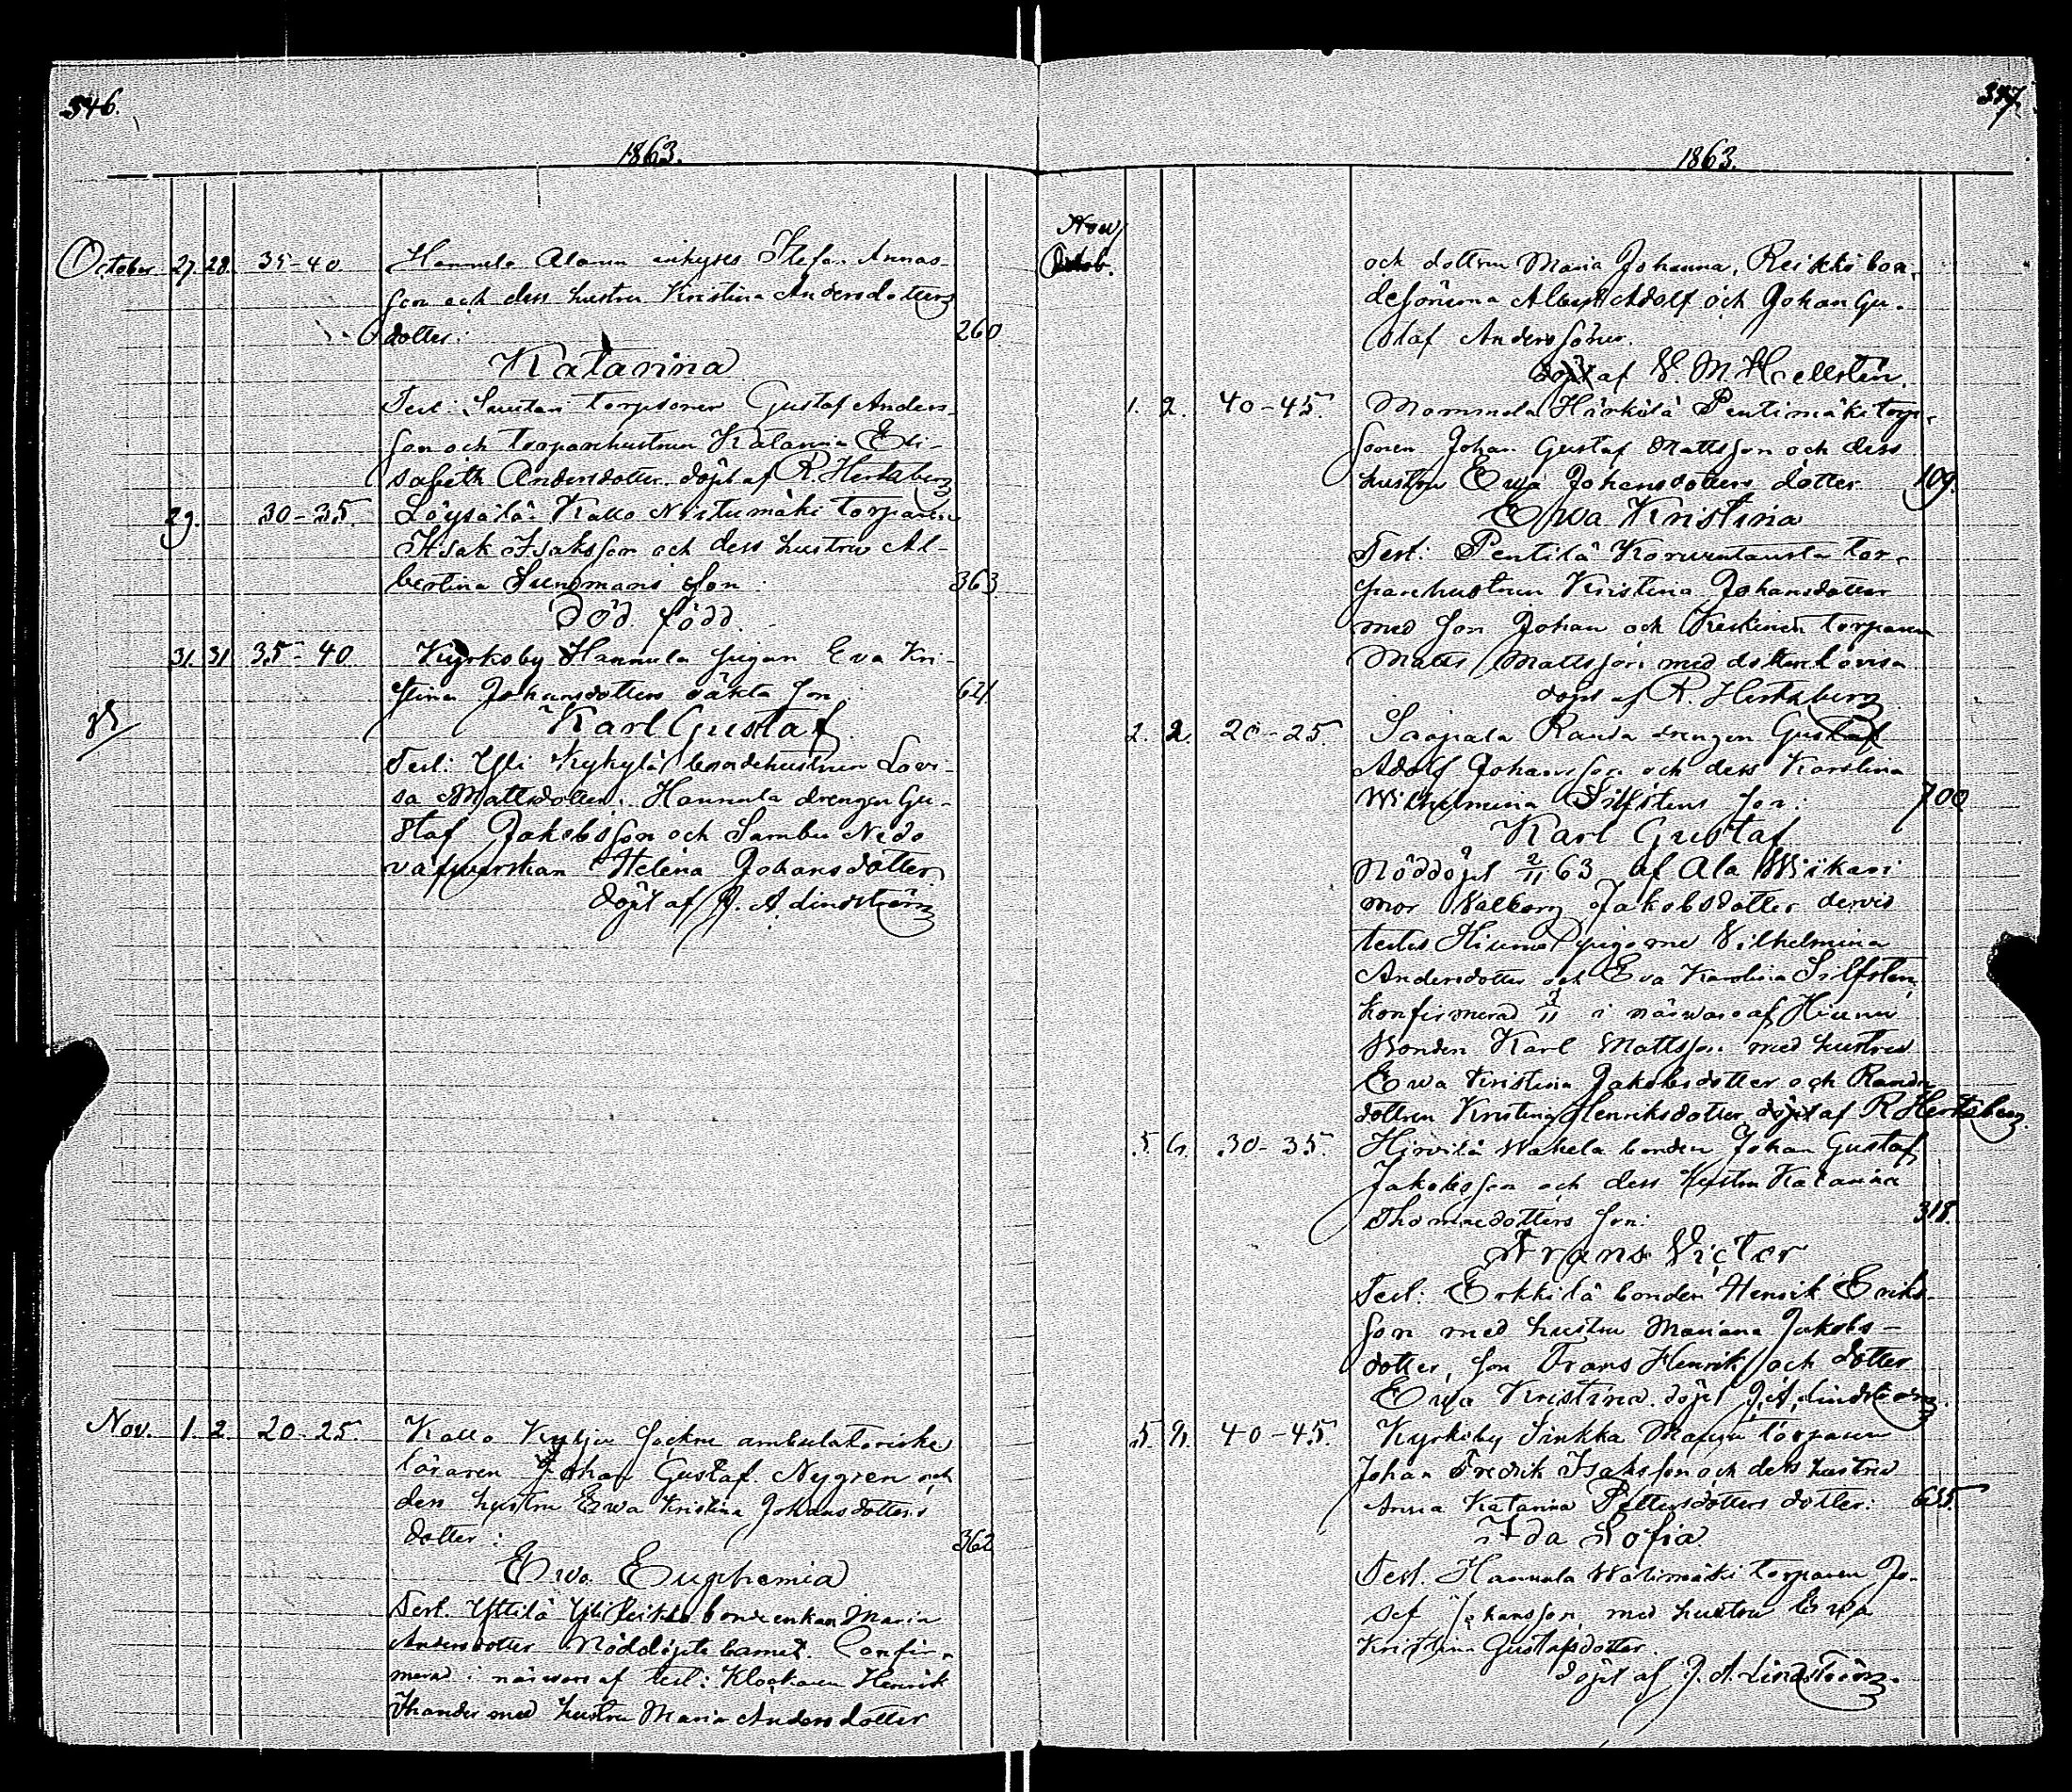 346.
1863.
October 27. 28. 35-40. Hannula Alanen inhyses Stefan Annas-
son och dess hustru Kristina Andersdotters
dotter: 260
Katarina
Test: torpsonen Gustaf Anders-
son och torparehustrun Katarina Eli-
sabeth Andersdotter. döpt af R. Hertzberg
29. 30-35. Löysälä Kallo torparen
Isak Isaksson och dess hustru Al-
bertina Sundmans son: 363
Död född.
31. 31 35-40 Kyrkoby Hannula pigan Eva Kri-
stina Johansdotters oäkta son: 621.
Karl Gustaf
Test: Yli Kykylä bondehustrun Lovi-
sa Mattsdotter. Hannula drengen Gu-
staf Jakobsson och
Helena Johansdotter.
döpt af J. A. Lindström
Nov. 1. 2. 20-25. Kallo socknens ambulatoriske
läraren Johan Gustaf Nygren och
dess hustru Ewa Kristina Johansdotters
dotter: 362
Ewa Euphemia
Test. Yttilä bondenkan Maria
Andersdotter Nöddöpte barnet. Confir-
merad i närwaro af test: Klockaren Henrik
med hustru Maria Andersdotter
347.
1863.
Nov.
Octob. och dottren Maria Johanna, Reikko bon-
desönerna Albert Adolf och Johan Gu-
staf Anderssöner.
döpt af V. M. Hellstén.
1. 2. 40-45. Mommola Härkälä Pentimäki torp-
sonen Johan Gustaf Mattsson och dess
hustru Ewa Johansdotters dotter. 109.
Ewa Kristina
Test: Pentilä tor-
parehustrun Kristina Johansdotter
med son Johan och torparen
Matts Mattsson med dotter Lovisa
döpt af R. Hertzberg
2. 2. 20-25. drengen Gustaf
Adolf Johansson och dess Karolina
Wilhelmina Silfstens son: 700
Karl Gustaf
Nöddöpt 2/11 63 af Ala Wiikari
mor Walborg Jakobsdotter dervid
testes pigorne Vilhelmina
Andersdotter och Eva Karolina Silfsten,
konfirmerad 3/11 i närwaro af
bonden Karl Mattsson med hustru
Ewa Kristina Jakobsdotter och
dottren Kristina Henriksdotter döpt af R Hertzberg.
5. 6. 30-35. Hirvilä Wahela bonden Johan Gustaf
Jakobsson och dess hustru Katarina
Thomasdotters son: 318.
Frans Victor
Test: Erkkilä bonden Henrik Eriks-
son med hustru Mariana Jakobs-
dotter, son Frans Henrik och dotter
Ewa Kristina. döpt J. A. Lindström.
5. 9. 40-45. Kyrkoby Sinkka torparen
Johan Fredrik Isaksson och dess hustru
Anna Katarina Pettersdotters dotter: 635.
Ida Sofia
Test. Hannula torparen Jo-
sef Johansson med hustru Ewa
Kristina Gustafsdotter.
döpt af J. A. Lindström.